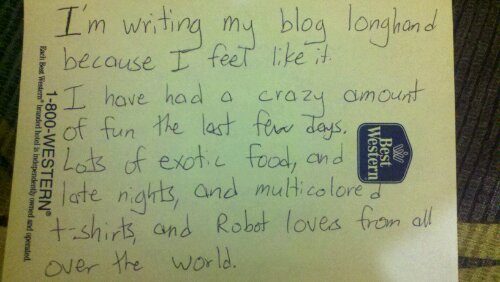 I'm writing my blog longhand
because I feel like it.
I have had a crazy amount
of fun the last few days.
Lots of exotic food, and
late nights, and multicolored
t-shirts, and Robot lovers from all
over the world.
Best
Western
1-800-WESTERN®
Each Best Western® branded hotel is independently owned and operated.